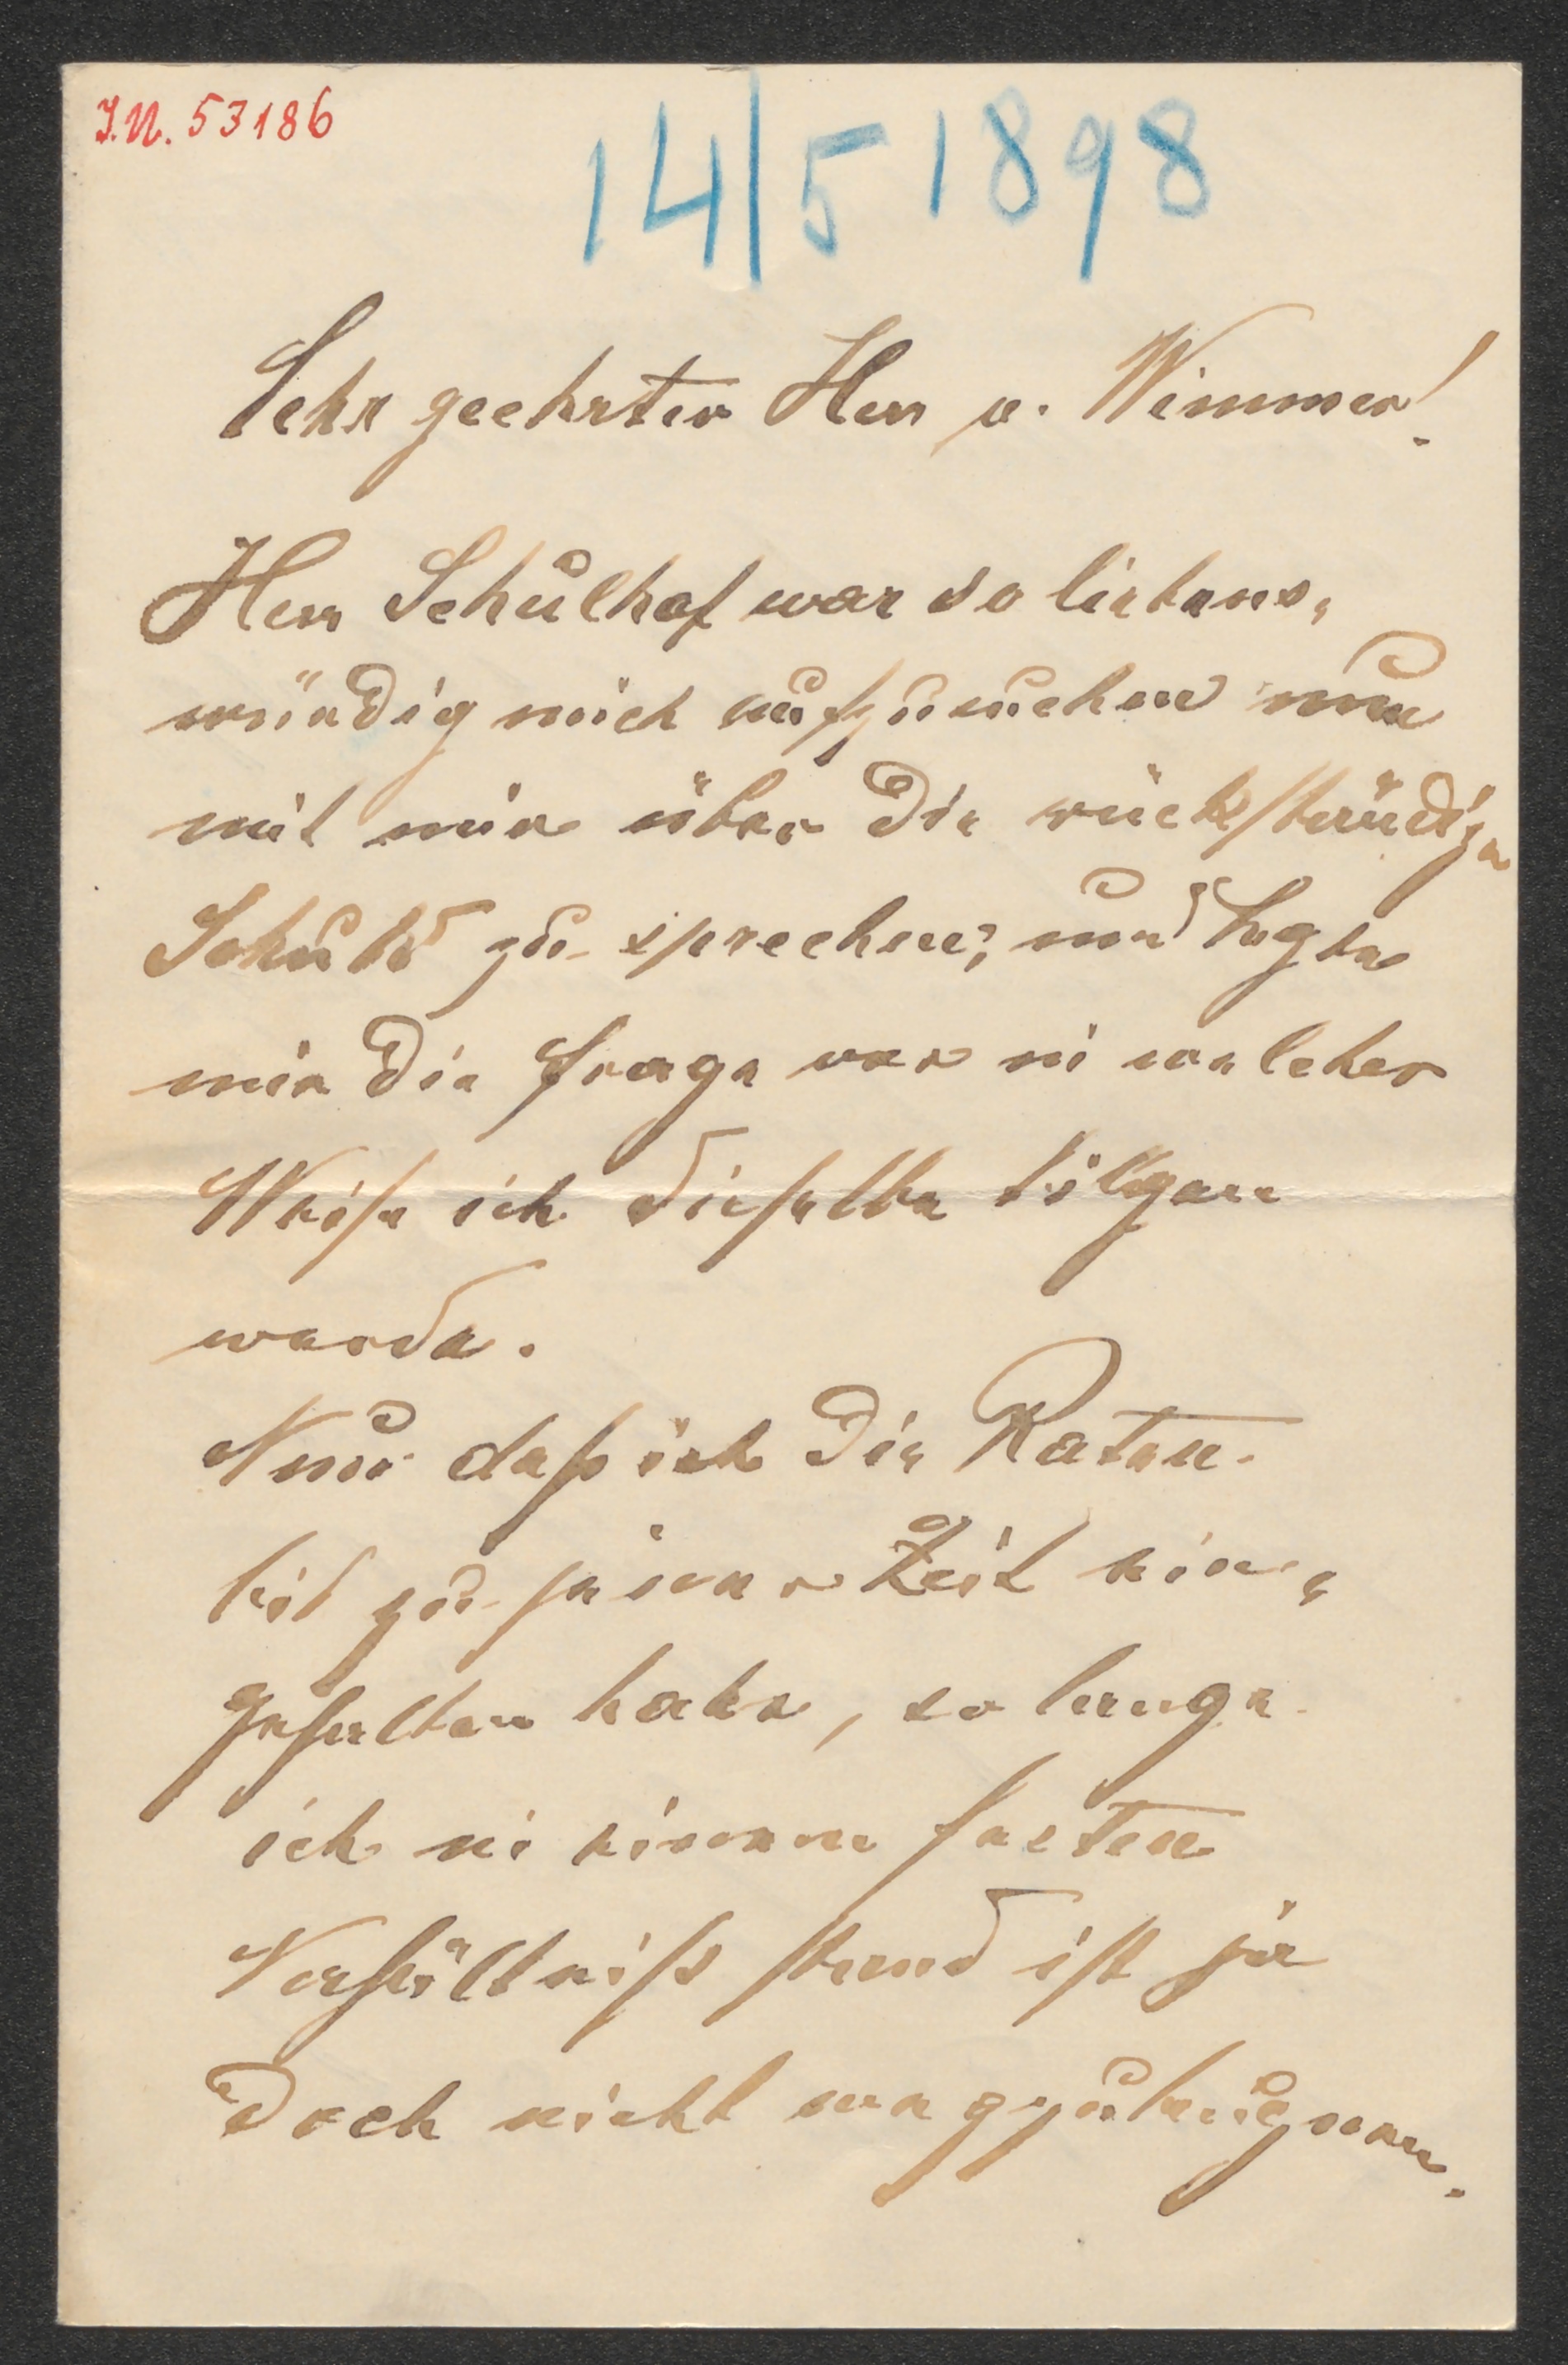 J.N. 53186
14/5 1898
Sehr geehrter Herr v. Wimmer!
Herr Schulhof war so liebens-
würdig mich aufzusuchen um
mit mir über die rückständige
Schuld zu sprechen, und legte
mir die Frage vor in welcher
Weise ich dieselbe tilgen
werde.
Nun daß ich die Raten
bis zu jener Zeit ein-
gehalten habe, so lange
ich in einem festen
Verhältniß stand ist ja
doch nicht wegzuleugnen.